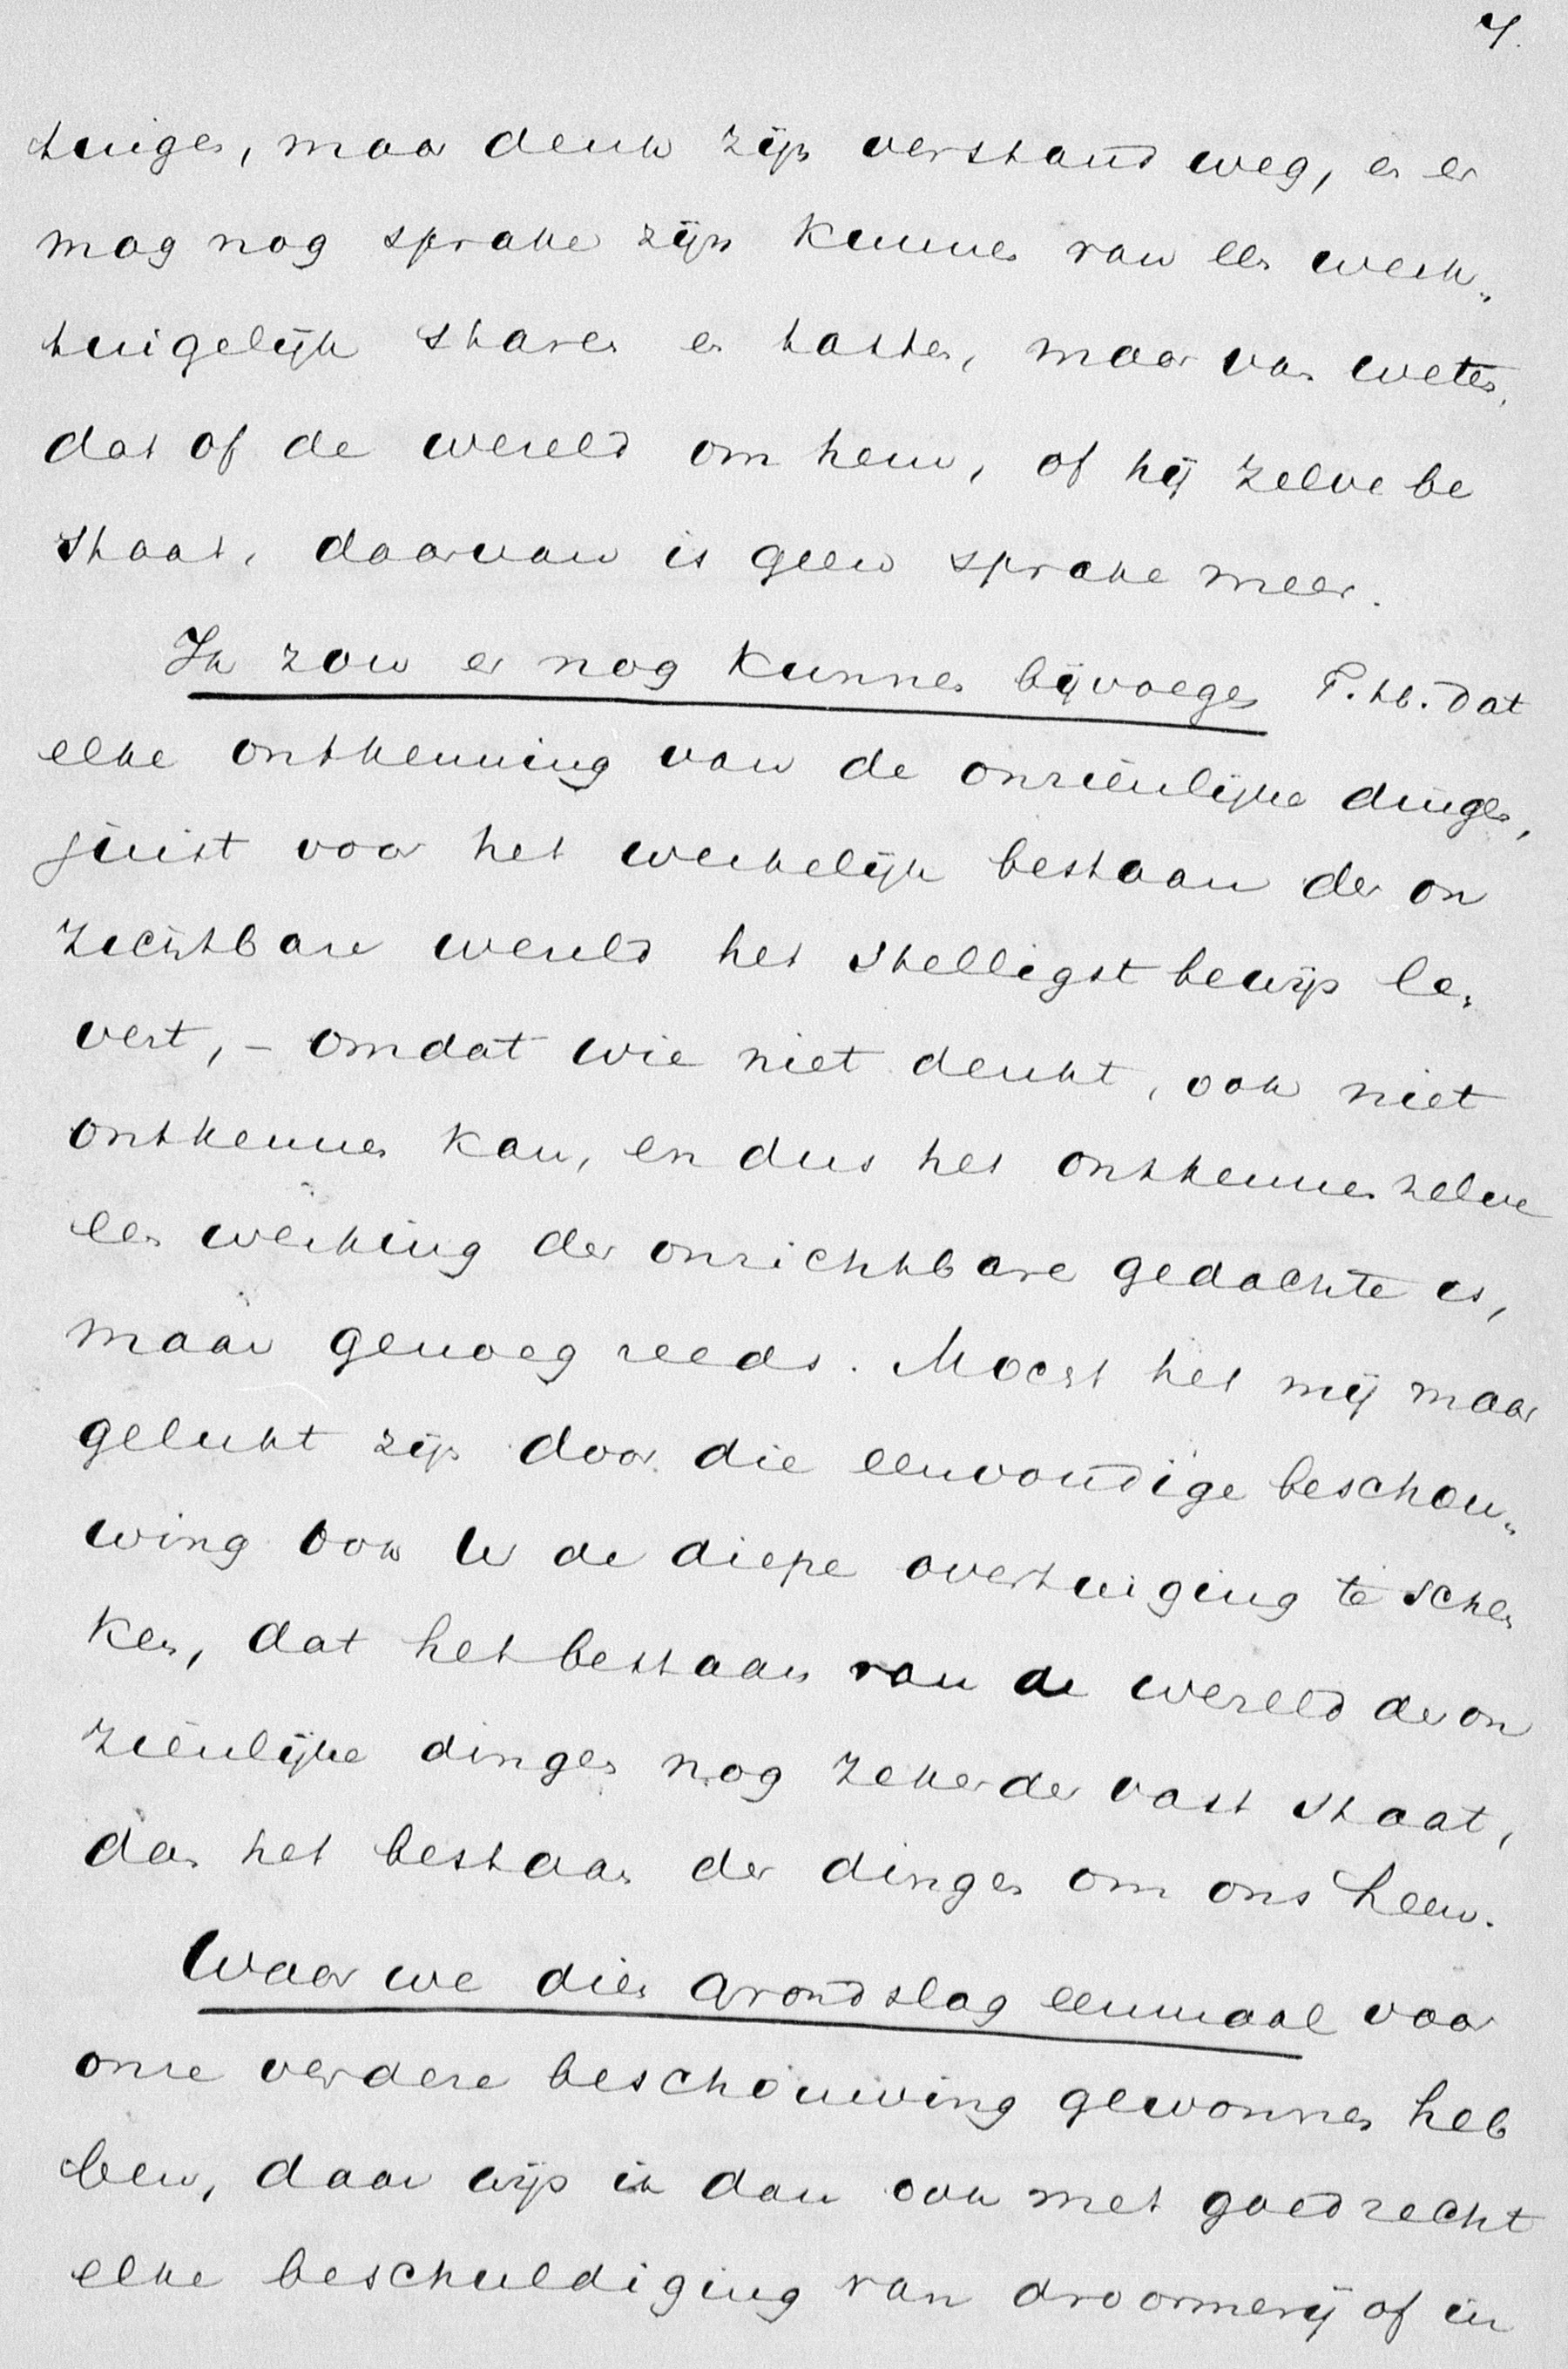 7.
tuigen, maar denk zijn verstand weg, en er
mag nog sprake zijn kunnen van een werk„
tuigelijk staren en tasten, maar van weten,
dat of de wereld om hem, of hij zelve be
staat, daarvan is geen sprake meer.
Ik zou er nog kunnen bijvoegen T. hb. dat
elke ontkenning van de onzienlijke dingen,
juist voor het werkelijk bestaan der on
zichtbare wereld het stelligst bewijs le„
vert, – omdat wie niet denkt, ook niet
ontkennen kan, en dus het ontkennen zelve
een werking der onzichtbare gedachte is,
maar genoeg reeds. Mocht het mij maar
gelukt zijn door die eenvoudige beschou„
wing ook U de diepe overtuiging te schen
ken, dat het bestaan van de wereld der on
zienlijke dingen nog zekerder vast staat,
dan het bestaan der dingen om ons heen.
Waar we dien grondslag eenmaal voor
onze verdere beschouwing gewonnen heb
ben, daar wijs ik dan ook met goed recht
elke beschuldiging van droomerij of in